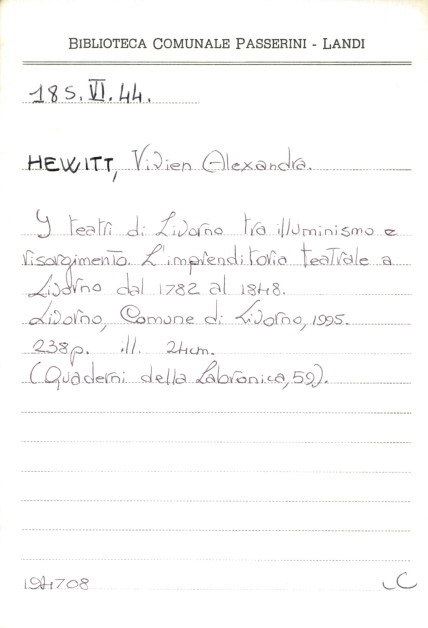 BIBLIOTECA COMUNALE PASSERINI - LANDI
18 S. VI. 44.
HEWITT, Vivien Alexandra.
I teatri di Livorno tra illuminismo e
risorgimento. L'imprenditoria teatrale a
Livorno dal 1782 al 1848.
Livorno, Comune di Livorno, 1995.
238p. ill. 24cm.
(Quaderni della Labronica, 59).
194708